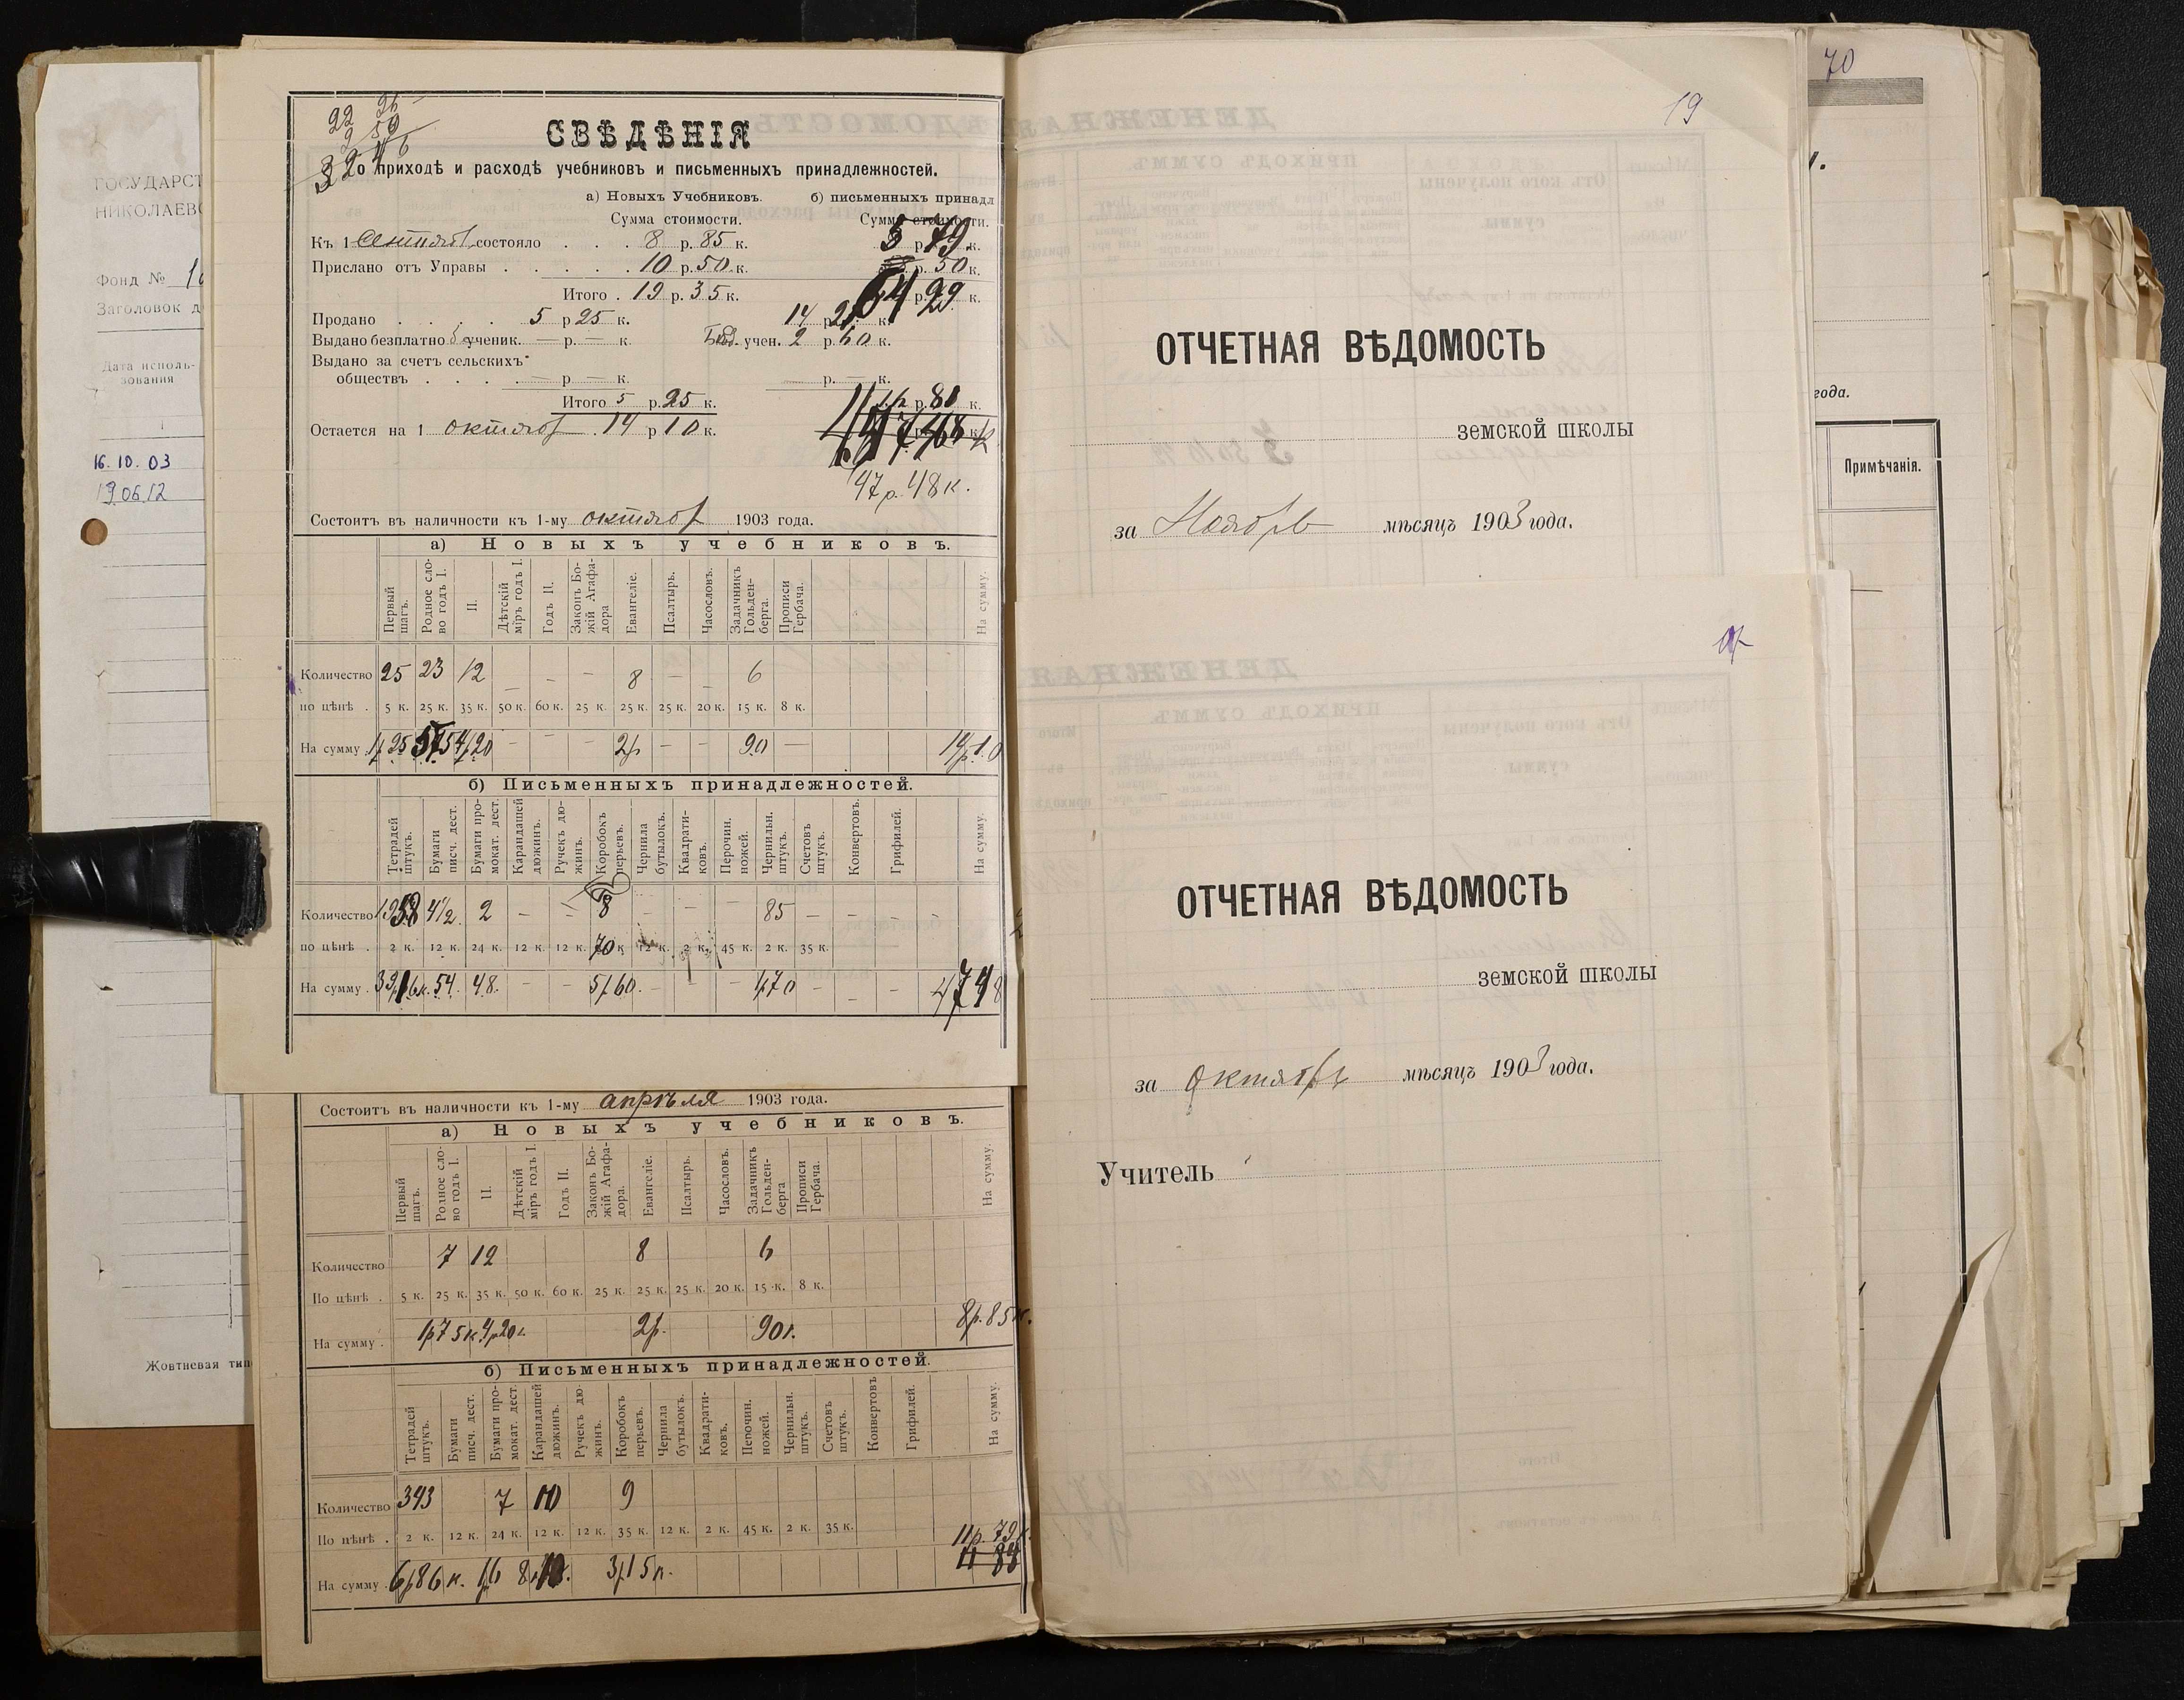 ГОСУДАРСТ
НИКОЛАЕВС
Фонд №
Заголовок д
Дата исполь-
зования
16.10.03
19.06.12
Жовтневая тип
22 26
СВѢДѢНІЯ
о приходѣ и расходѣ учебниковъ и письменныхъ принадлежностей.
а) Новыхъ Учебниковъ. б) письменныхъ принадл
Сумма стоимости. Сумма стоимости.
Къ 1 Сентября состояло . . . 8 р. 85 к. р. 79 к.
Прислано отъ Управы . . . . . 10 р. 50 к. р. 50 к.
Итого . 19 р. 35 к. 64 р. 29 к.
Продано . . . . 5 р 25 к. 14 р. к.
Выдано безплатно ученик. — р. — к. Бѣд. учен. 2 р. 60 к.
Выдано за счетъ сельскихъ
обществъ . . . . — р — к. — р. — к.
Итого 5 р. 25 к. р. к.
Остается на 1 октября . 14 р 10 к.
47 р. 48 к.
Состоитъ въ наличности къ 1-му октября 1903 года.
а) Новыхъ учебниковъ.
Первый шагъ. Родное сло-во годъ I. II. Дѣтскій міръ годъ I. Годъ II. Законъ Бо-жій Агафа-дора Евангеліе. Псалтырь. Часословъ. Задачникъ Гольден-берга. Прописи Гербача. На сумму.
Количество 25 23 12 — — — 8 — — 6
по цѣнѣ . 5 к. 25 к. 35 к. 50 к. 60 к. 25 к. 25 к. 25 к. 20 к. 15 к. 8 к.
На сумму . 1р 25 5 75 4р20 — — — 2р — — 90 — 14р.10
б) Письменныхъ принадлежностей.
Тетрадей штукъ. Бумаги писч. дест. Бумаги про-мокат. дест. Карандашей дюжинъ. Ручекъ дю-жинъ. Коробокъ перьевъ. Чернила бутылокъ. Квадрати-ковъ. Перочин. ножей. Чернильн. штукъ. Счетовъ штукъ. Конвертовъ. Грифилей. На сумму.
Количество 1958 4½ 2 — — 8 — — — 85 — — — -
по цѣнѣ . 2 к. 12 к. 24 к. 12 к. 12 к. 70 к 12 к. 2 к. 45 к. 2 к. 35 к.
На сумму . 39р16к. 54. 48. — — 5р60. — — 1р70 — — — 47 48
Состоитъ въ наличности къ 1-му апрѣля 1903 года.
а) Новыхъ учебниковъ.
Первый шагъ. Родное сло-во годъ I. II. Дѣтскій міръ годъ I. Годъ II. Законъ Бо-жій Агафа-дора. Евангеліе. Псалтырь. Часословъ. Задачникъ Гольден-берга Прописи Гербача. На сумму.
Количество 7 12 8 6
По цѣнѣ . 5 к. 25 к. 35 к. 50 к. 60 к. 25 к. 25 к. 25 к. 20 к. 15 к. 8 к.
На сумму . 1р75к 4р20к 2р. 90к. 8р.85к.
б) Письменныхъ принадлежностей.
Тетрадей штукъ. Бумаги писч. дест. Бумаги про-мокат. дест. Карандашей дюжинъ. Ручекъ дю-жинъ. Коробокъ перьевъ. Чернила бутылокъ. Квадрати-ковъ. Перочин. ножей. Чернильн. штукъ. Счетовъ штукъ. Конвертовъ Грифилей. На сумму.
Количество 343 7 10 9
По цѣнѣ . 2 к. 12 к. 24 к. 12 к. 12 к. 35 к. 12 к. 2 к. 45 к. 2 к. 35 к. 11р.79
На сумму . 6р86к. 3р15к.
19
ОТЧЕТНАЯ ВѢДОМОСТЬ
земской школы
за Ноябрь мѣсяцъ 1903 года.
ОТЧЕТНАЯ ВѢДОМОСТЬ
земской школы
за октябрь мѣсяцъ 1903 года.
Учитель
70
года.
Примѣчанія.